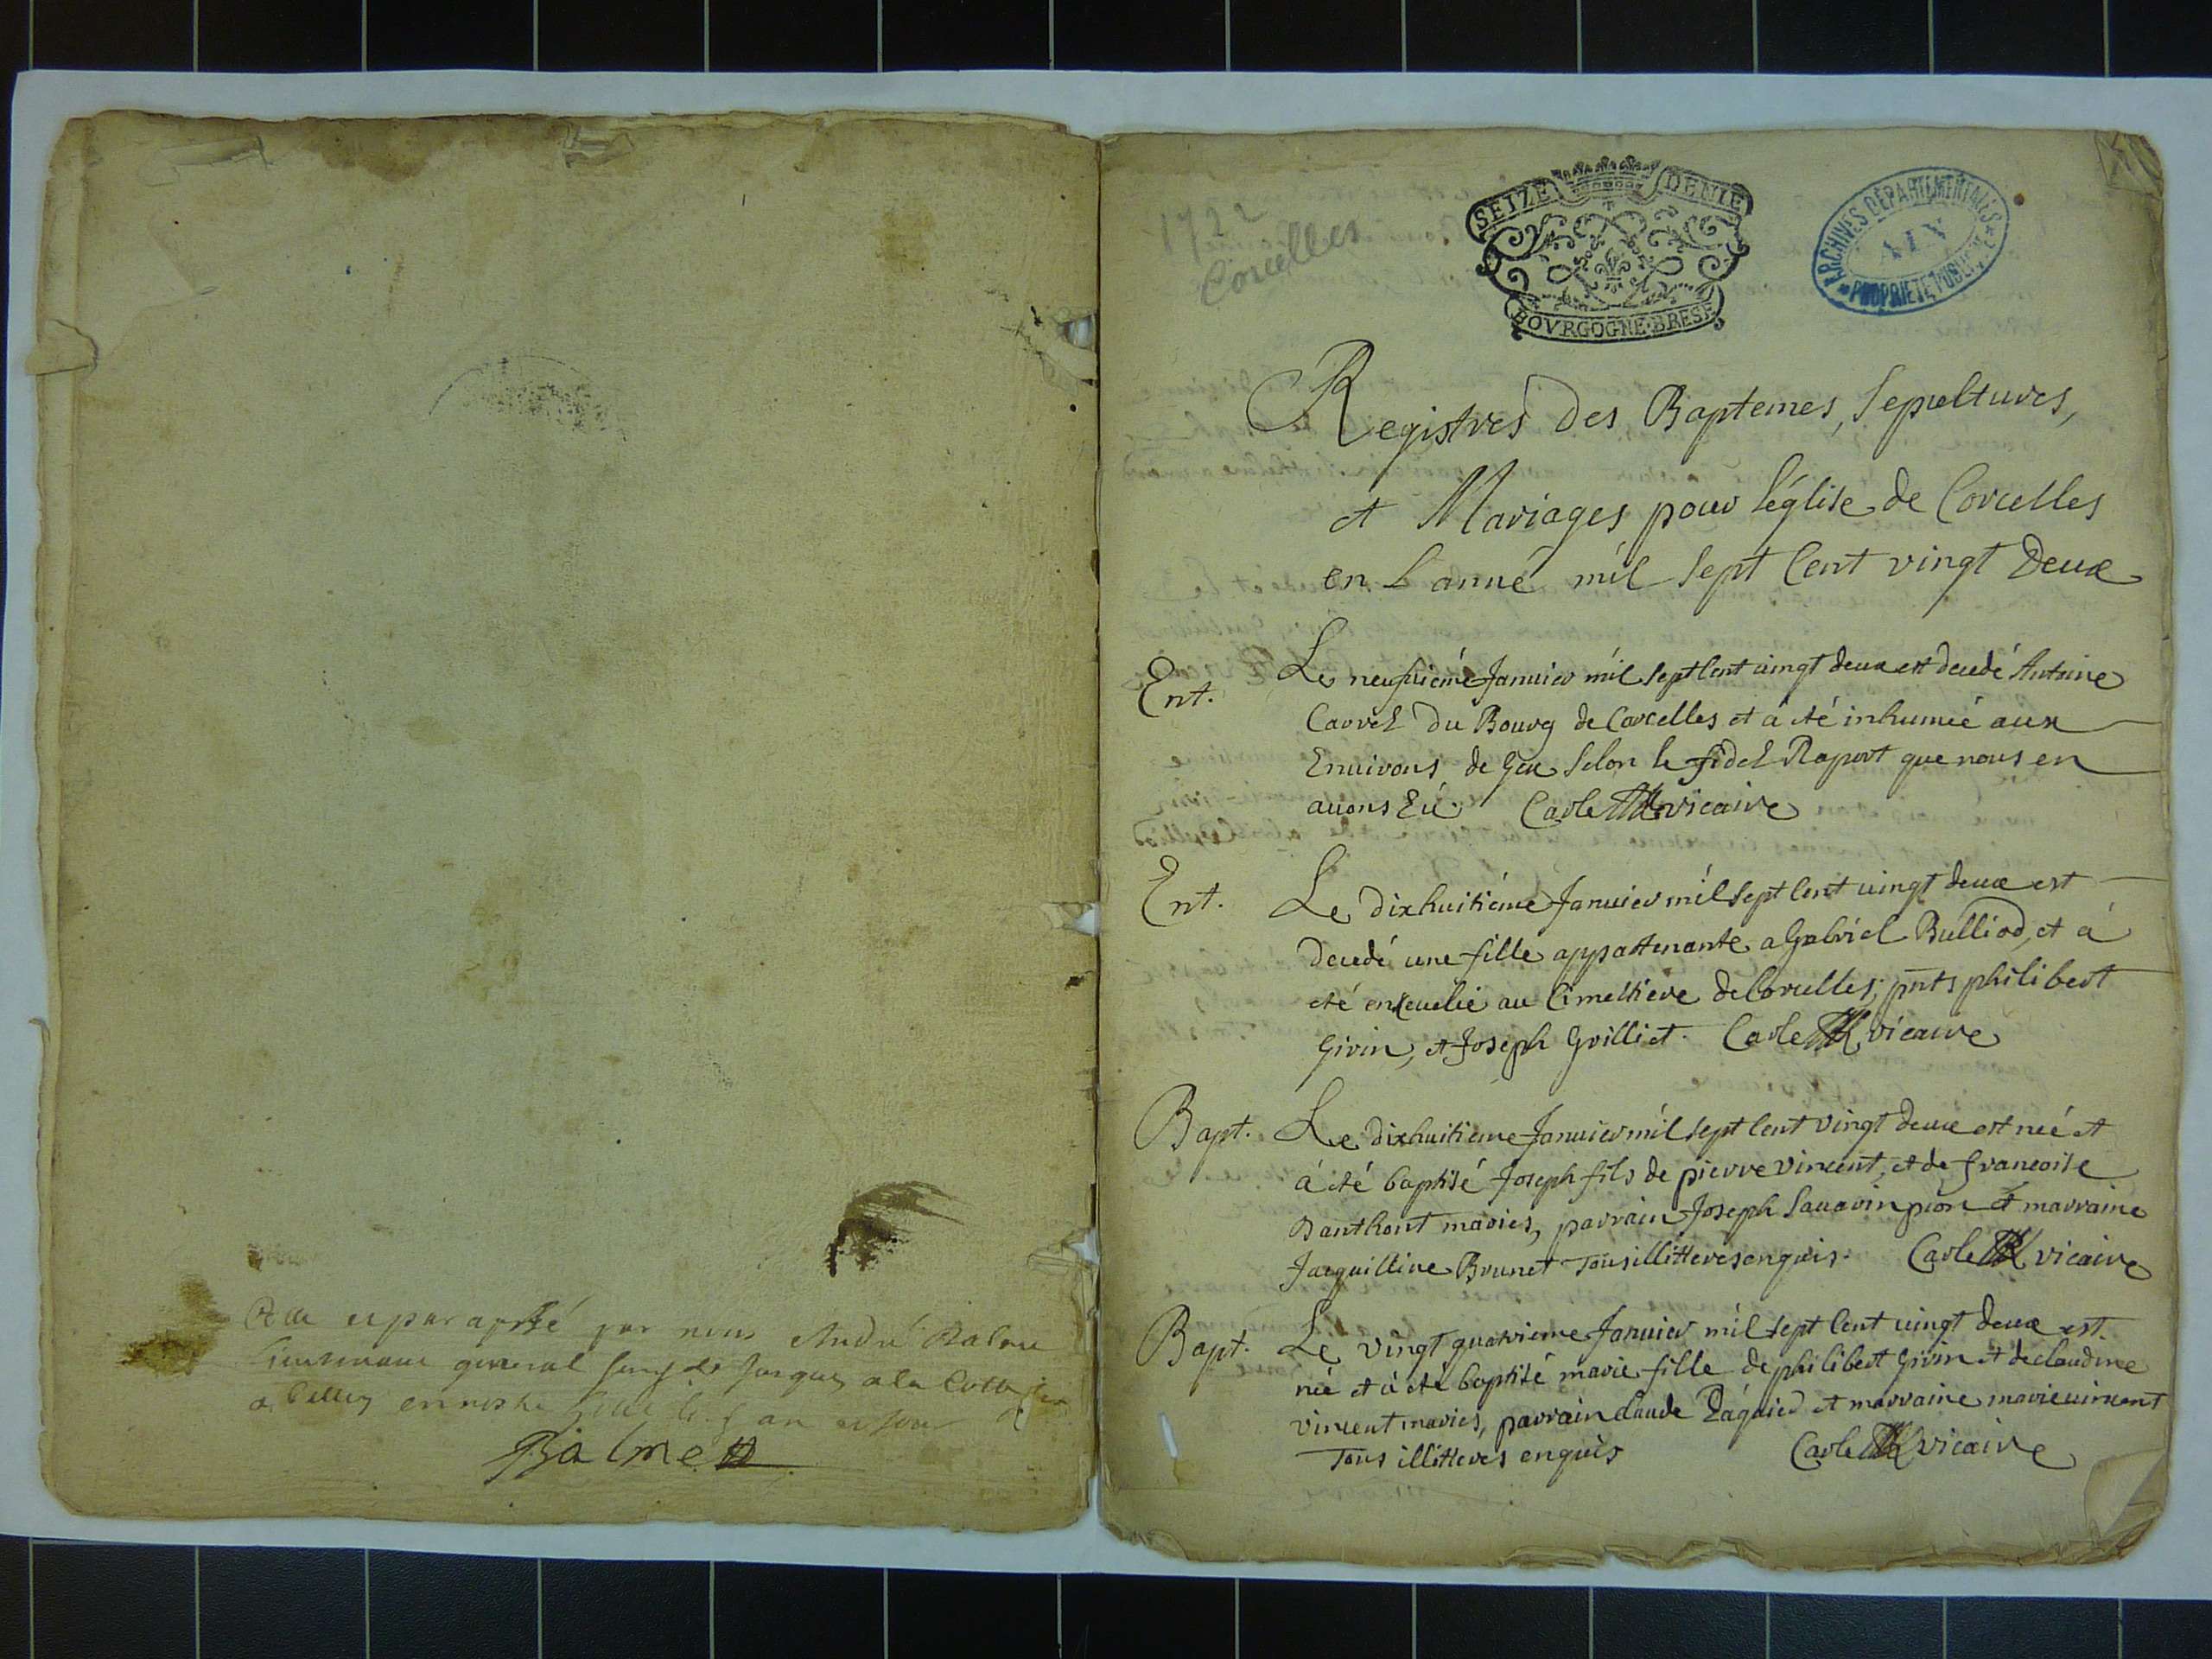 par nous André Balme
lieutenant general
a Belley en nostre an
Balme
1722
Corcelles
SEIZE DENIE
BOVRGOGNE·BRESE
ARCHIVES DÉPARTEMENTALES
AIN
PROPRIÉTÉ PUBLIQUE
Registres des Baptemes, Sepultures,
et Mariages pour l'église de Corcelles
en L'anné mil sept Cent vingt Deux
Ent.
Le neufuiéme Januier mil sept Cent uingt deux est decedé Antoine
Carrel du Bourg de Corcelles et à été inhumée aux
Enuirons de Gex selon le fidel Raport que nous en
auons Eû. Carle vicaire
Ent.
Le dixhuitiéme Januier mil sept Cent uingt deux est
decedé une fille appartenante a Gabriel Bulliod, et à
été enseuelie au Cimettiere de Corcelles; pnts philibert
Girin, et Joseph Grilliet. Carle vicaire
Bapt.
Le dixhuitieme Januier mil sept Cent vingt deux est neé et
à été baptisé Joseph fils de pierre vincent, et de francoise
Santhont mariés, parrain Joseph Sauarin pion et marraine
Jacquilline Brunet Tous illitterés enquis. Carle vicaire
Bapt.
Le vingt quatrieme Januier mil sept Cent uingt deux est
neé et à été baptisé marie fille de philibert Girin et de claudine
vincent mariés, parrain claude et marraine marie uincent
Tous illitterés enquis Carle vicaire